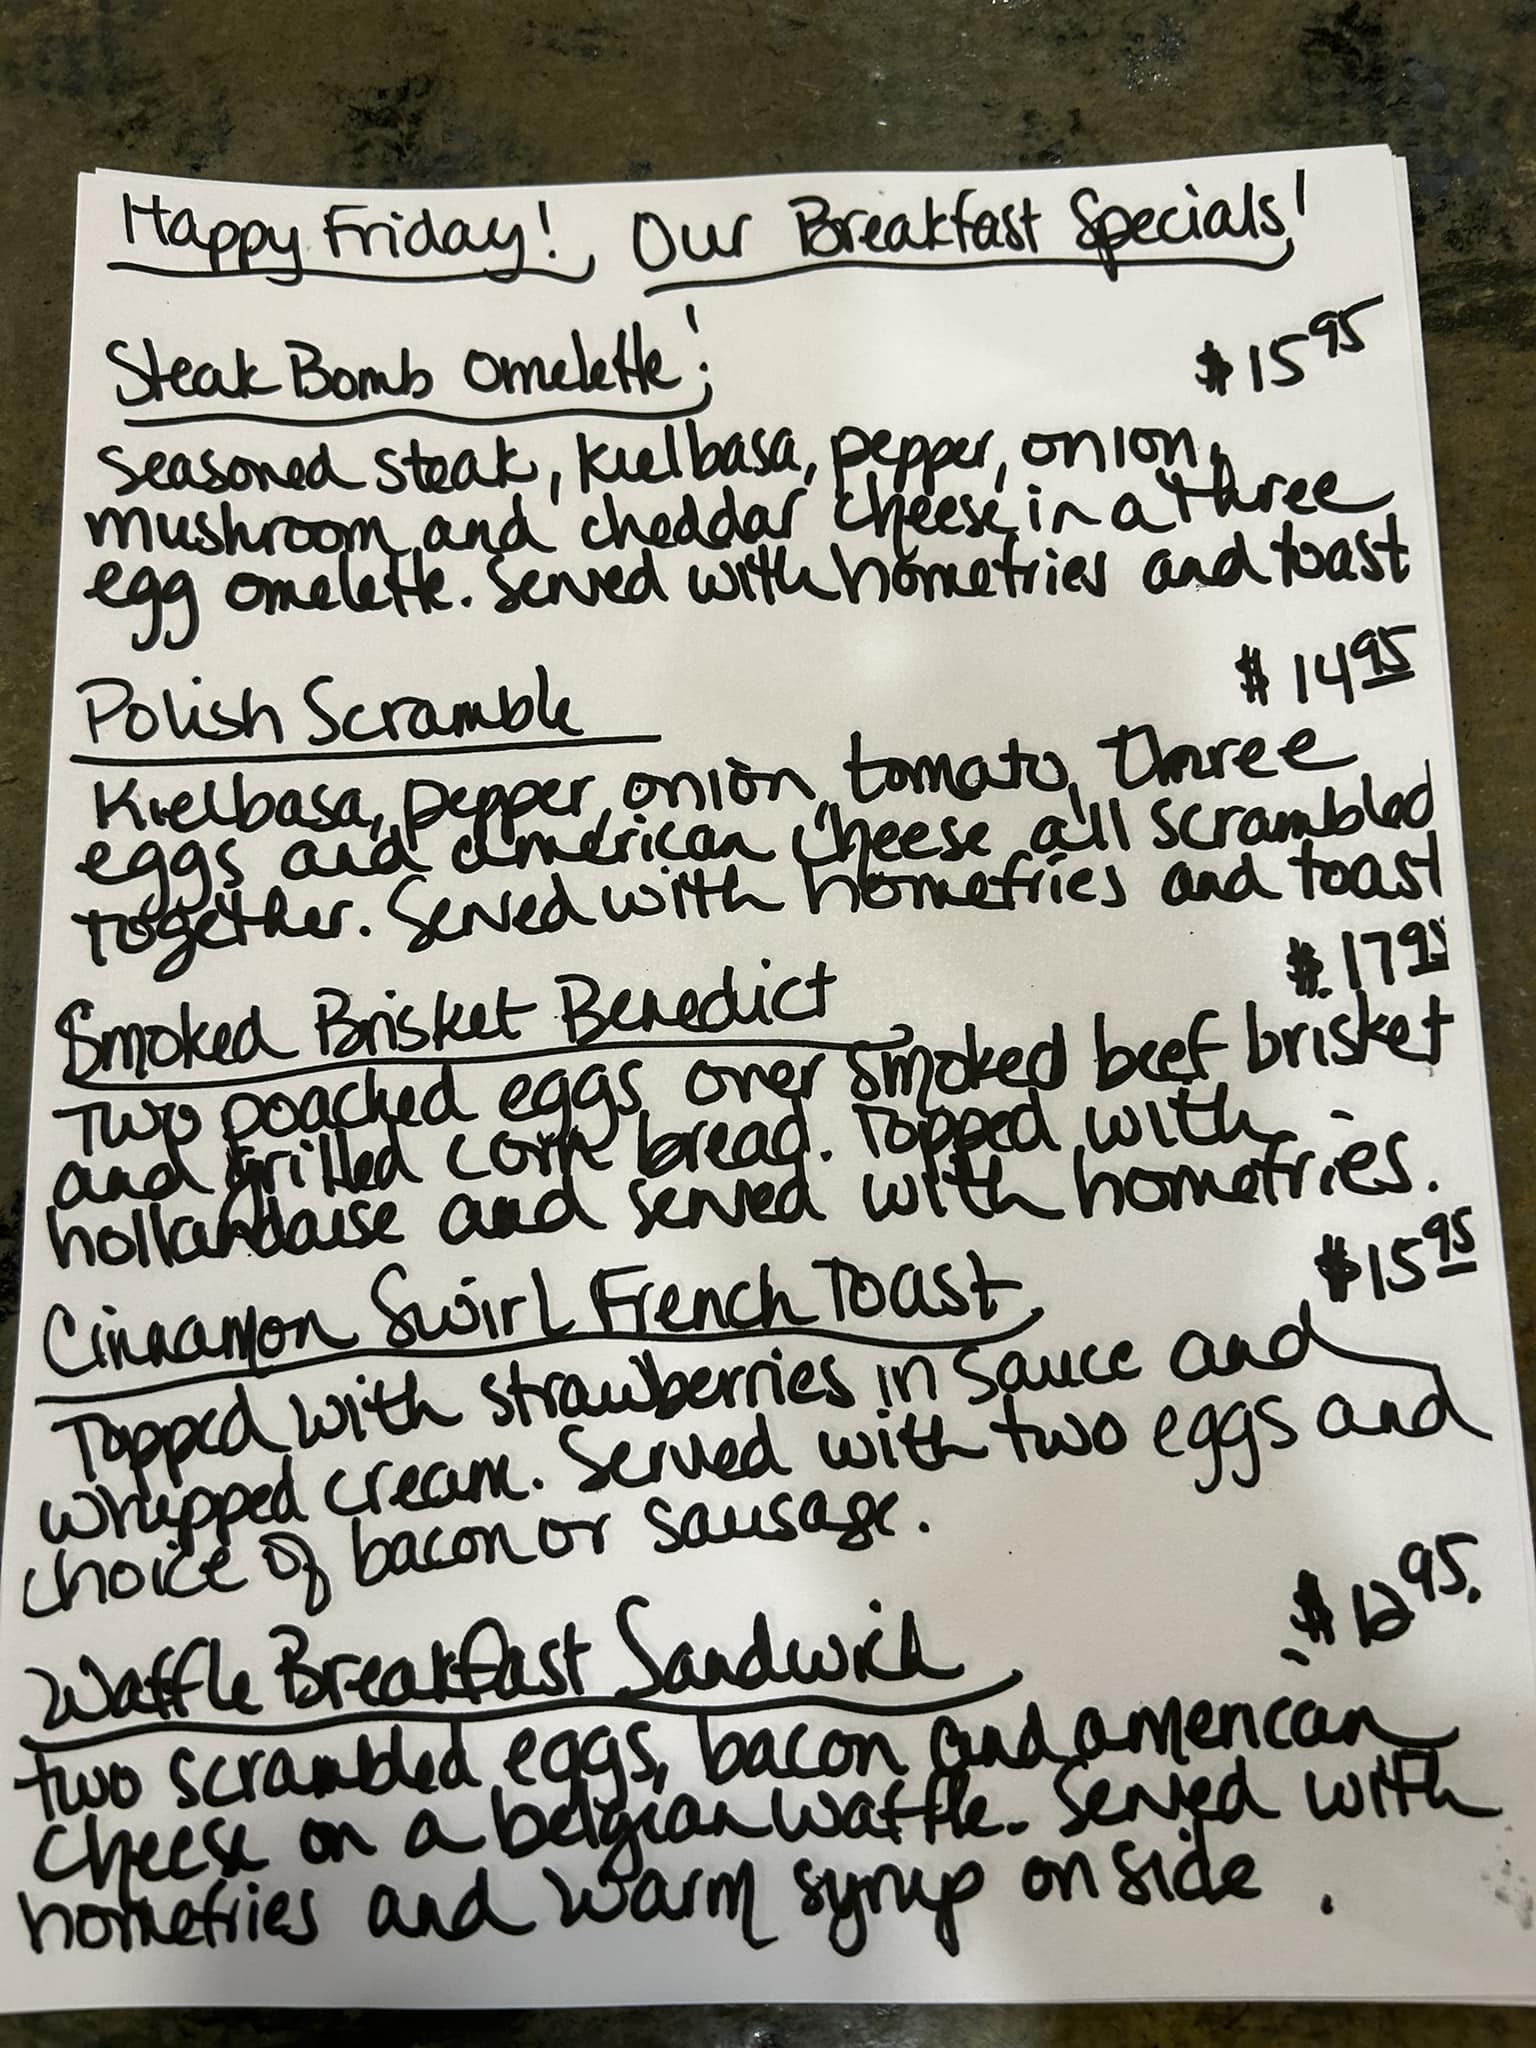 Happy Friday! Our Breakfast Specials!
Steak Bomb Omelette! $15.95
Seasoned steak, kielbasa, pepper, onion,
mushroom and cheddar cheese in a three
egg omelette. Served with homefries and toast
Polish Scramble $14.95
Kielbasa, pepper, onion, tomato, three
eggs and american cheese all scrambled
together. Served with homefries and toast
Smoked Brisket Benedict $17.95
Two poached eggs over smoked beef brisket
and grilled corn bread. Topped with
hollandaise and served with homefries.
Cinnamon Swirl French Toast $15.95
Topped with strawberries in sauce and
whipped cream. Served with two eggs and
choice of bacon or sausage.
Waffle Breakfast Sandwich $12.95.
two scrambled eggs, bacon and american
cheese on a belgian waffle. Served with
homefries and warm syrup on side.